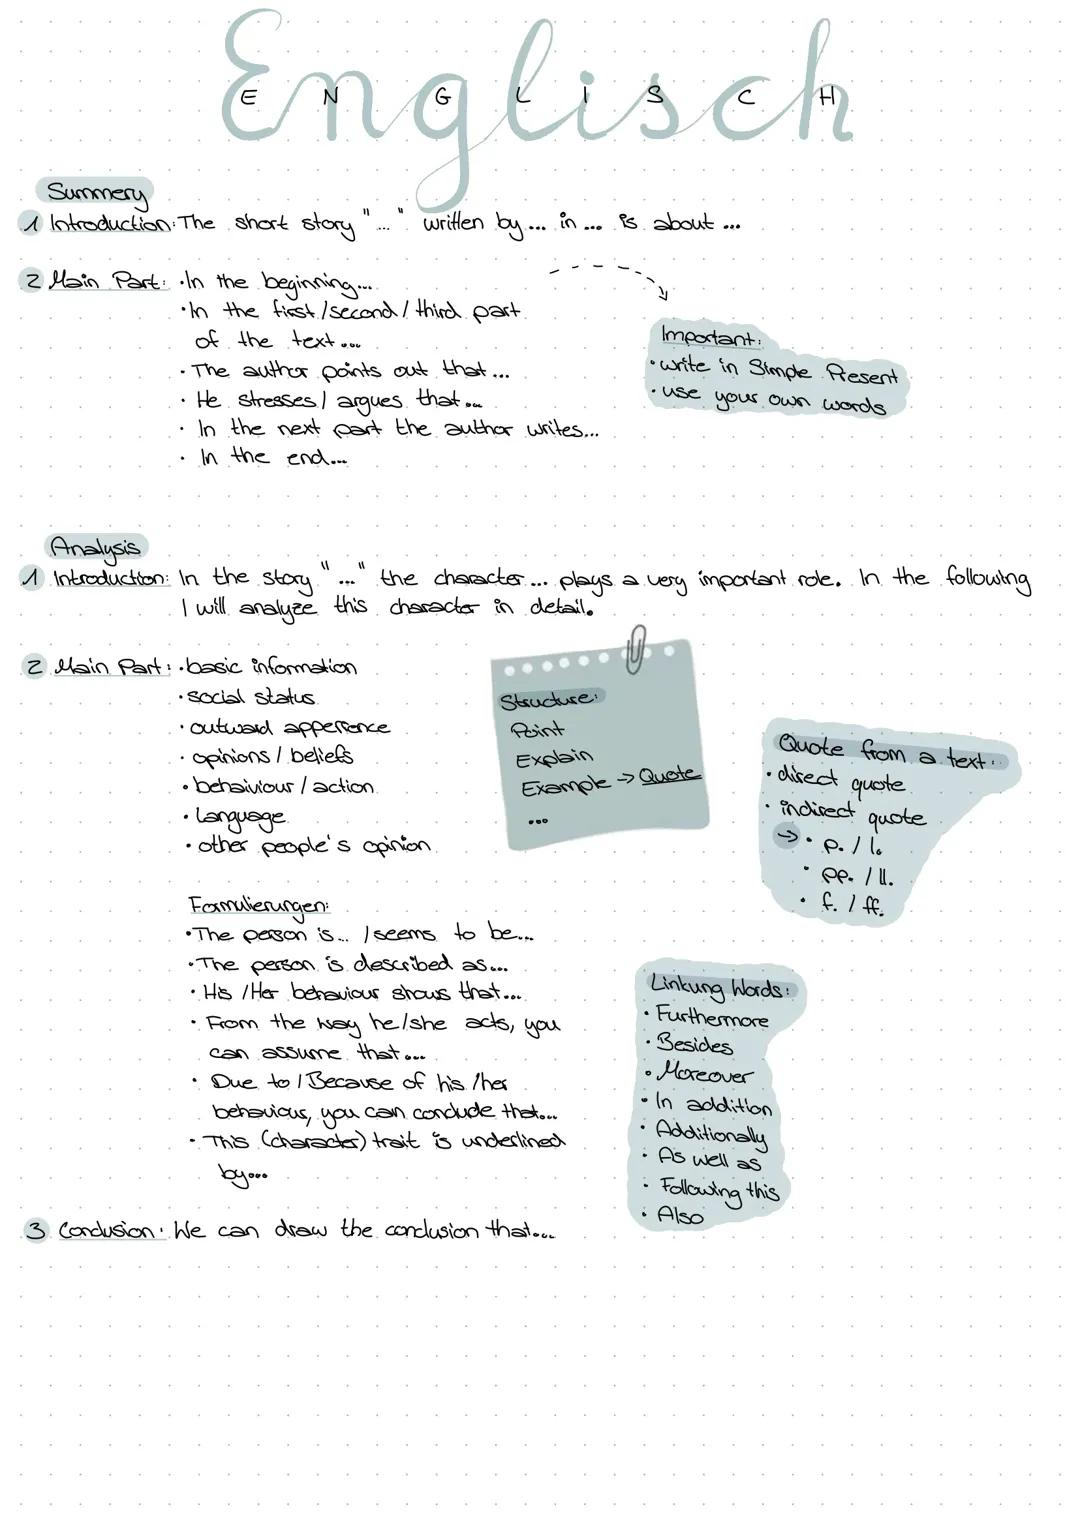 Englisch
E N G L I S C H
Summery
1 Introduction: The short story "..." written by ... in ... is about ...
2 Main Part: ·In the beginning...
·In the first/second/third part
of the text...
·The author points out that...
·He stresses/argues that...
·In the next part the author writes...
·In the end...
Important:
·write in Simple Present
·use your own words
Analysis
1 Introduction: In the story "..." the character... plays a very important role. In the following
I will analyze this character in detail.
2 Main Part: ·basic information
·social status
·outward apperence
·opinions/beliefs
·behaiviour/action
·Language
·other people's opinion
Structure:
Point
Explain
Example → Quote
...
Quote from a text:
·direct quote
·indirect quote
→ · p. / l.
· pp. / ll.
· f. / ff.
Formulierungen:
·The person is... /seems to be...
·The person is described as...
·His/Her behaviour shows that...
·From the way he/she acts, you
can assume that...
·Due to/Because of his/her
behaviour, you can conclude that...
·This (character) trait is underlined
by...
Linkung Words:
·Furthermore
·Besides
·Moreover
·In addition
·Additionally
·As well as
·Following this
·Also
3 Conclusion: We can draw the conclusion that...